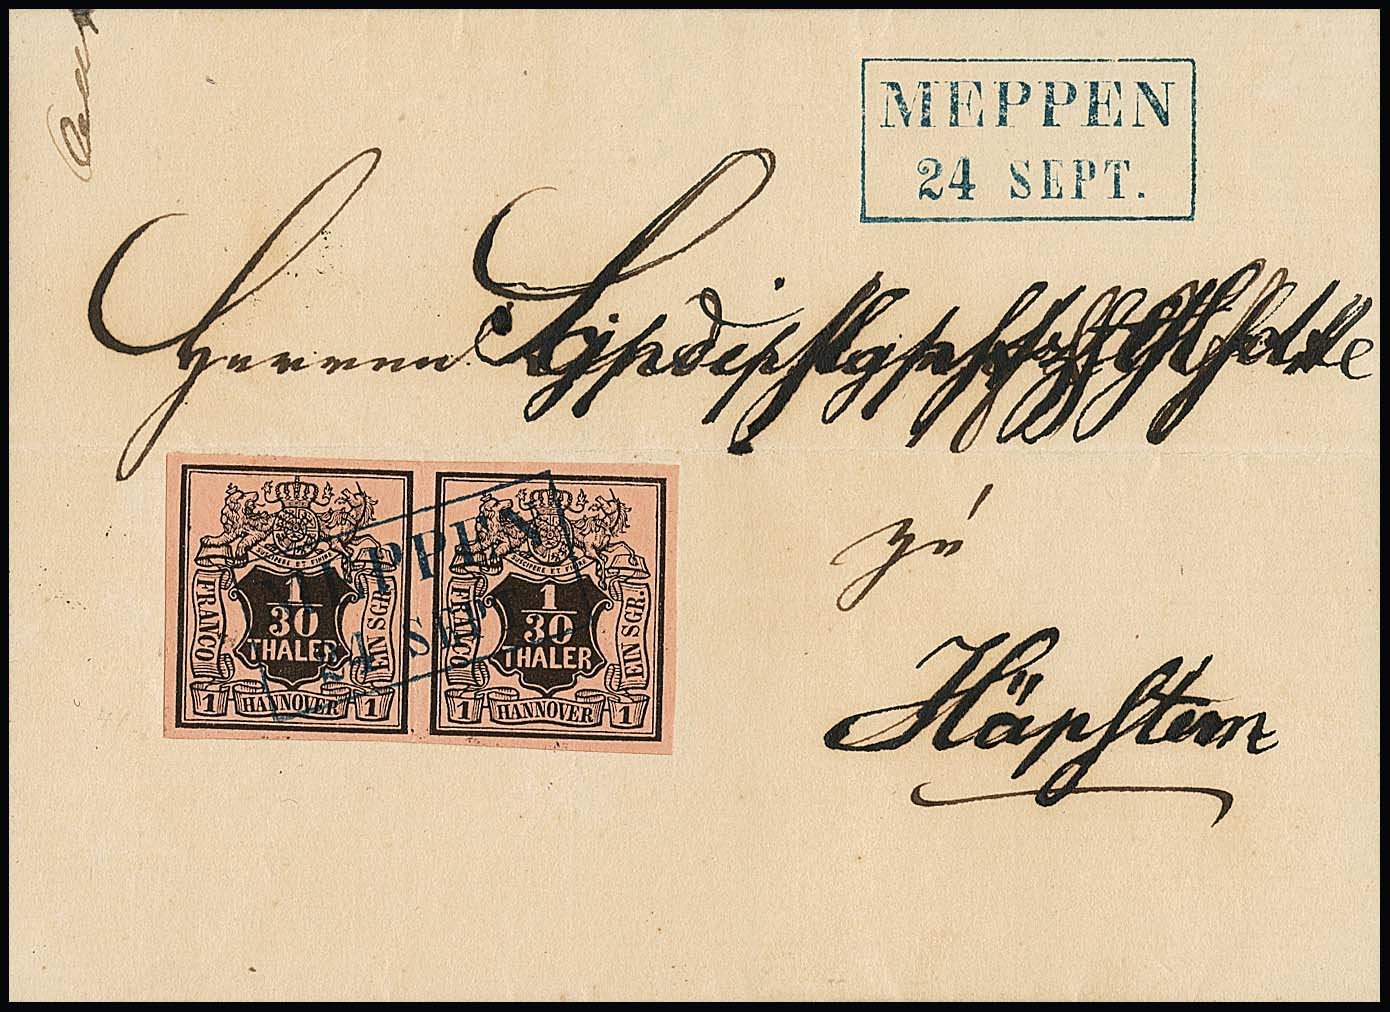 MEPPEN
24 SEPT.
Herren
zu
SUSCIPERE ET FINIRE
FRANCO
1
30
THALER
EIN SGR.
1 HANNOVER 1
SUSCIPERE ET FINIRE
FRANCO
1
30
THALER
EIN SGR.
1 HANNOVER 1
MEPPEN
24 SEPT.